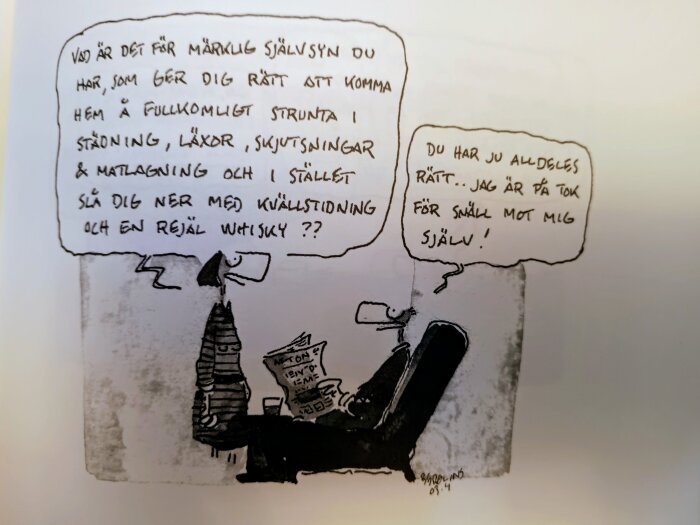 VAD ÄR DET FÖR MÄRKLIG SJÄLVSYN DU
HAR, SOM GER DIG RÄTT ATT KOMMA
HEM Å FULLKOMLIGT STRUNTA I
STÄDNING, LÄXOR, SKJUTSNINGAR
& MATLAGNING OCH I STÄLLET
SLÅ DIG NER MED KVÄLLSTIDNING
OCH EN REJÄL WHISKY ??
DU HAR JU ALLDELES
RÄTT.. JAG ÄR PÅ TOK
FÖR SNÄLL MOT MIG
SJÄLV!